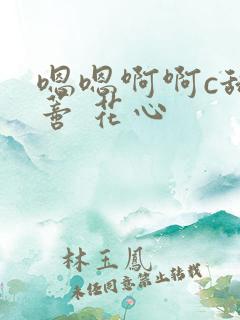 嗯嗯啊啊c
善 花心
林玉鳳
未任同意禁止转载